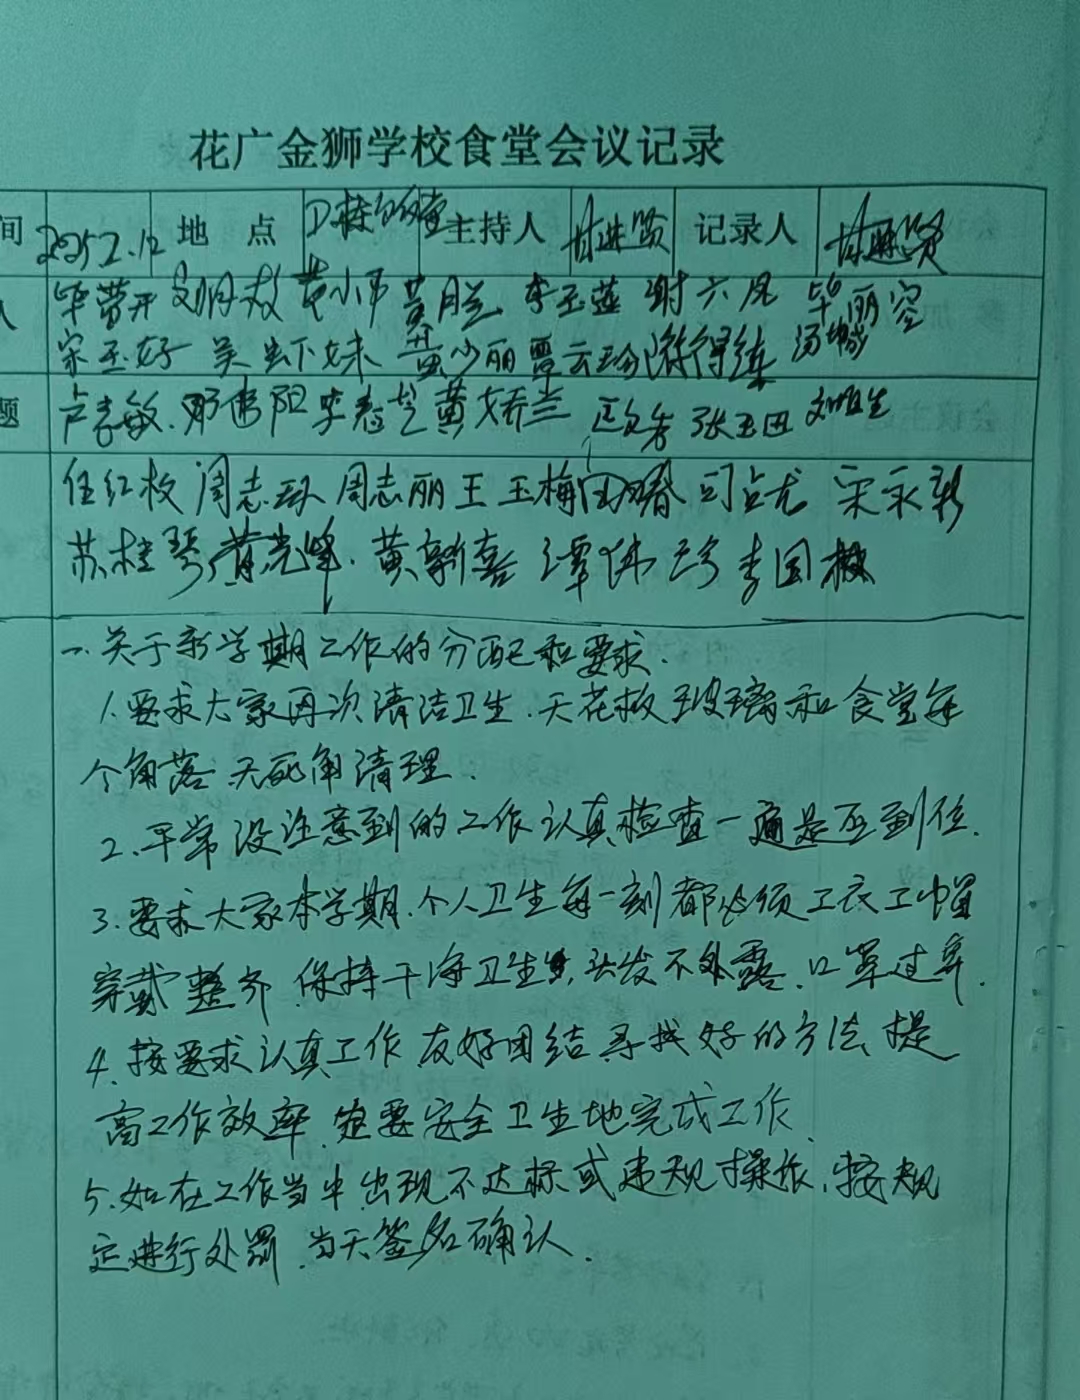 花广金狮学校食堂会议记录
间 2025.2.12 地 点 D栋 主持人 甘进贤 记录人 甘进贤
人 黄小 黄 李玉莲 谢六凤 毕丽容
宋玉好 吴虾妹 黄少丽 覃云 得
题 卢志敏. 阳 李志 黄娇兰 张玉田 刘 生
任红枚 周志 周志丽 王玉梅 春 司 宋永新
苏桂琴 黄光峰. 黄新喜 谭伟 李国
一. 关于新学期工作的分配和要求.
1. 要求大家再次清洁卫生. 天花板玻璃和食堂每
个角落 无死角清理.
2. 平常没注意到的工作认真检查一遍是否到位.
3. 要求大家本学期. 个人卫生每一刻都必须工衣工帽
穿戴整齐 保持干净卫生, 头发不外露. 口罩过
4. 按要求认真工作 友好团结 寻找好的方法 提
高工作效率. 要安全卫生地完成工作.
5. 如在工作当中出现不达标或违规操作, 按规
定进行处罚. 当天签名确认.